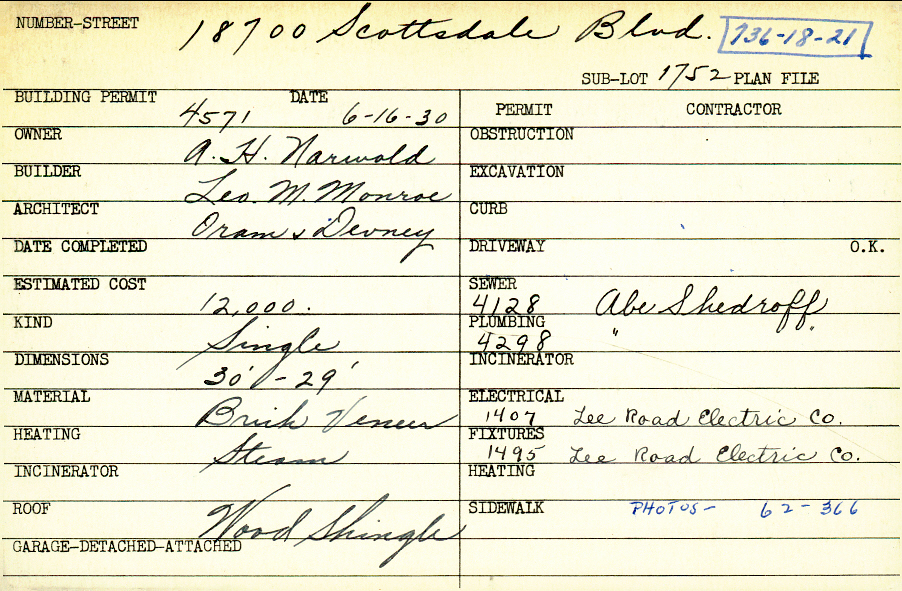 NUMBER-STREET 18700 Scottsdale Blvd. 736-18-21
SUB-LOT 1752 PLAN FILE
BUILDING PERMIT 4571 DATE 6-16-30
PERMIT CONTRACTOR
OWNER A. H. Narwold
OBSTRUCTION
BUILDER Leo. M. Monroe
EXCAVATION
ARCHITECT Oram & Devney
CURB
DATE COMPLETED
DRIVEWAY O.K.
ESTIMATED COST 12,000.
SEWER 4128 Abe Shedroff
KIND Single
PLUMBING 4298 "
DIMENSIONS 30' - 29'
INCINERATOR
MATERIAL Brick Veneer
ELECTRICAL 1407 Lee Road Electric Co.
HEATING Steam
FIXTURES 1495 Lee Road Electric Co.
INCINERATOR
HEATING
ROOF Wood Shingle
SIDEWALK PHOTOS- 62-366
GARAGE-DETACHED-ATTACHED